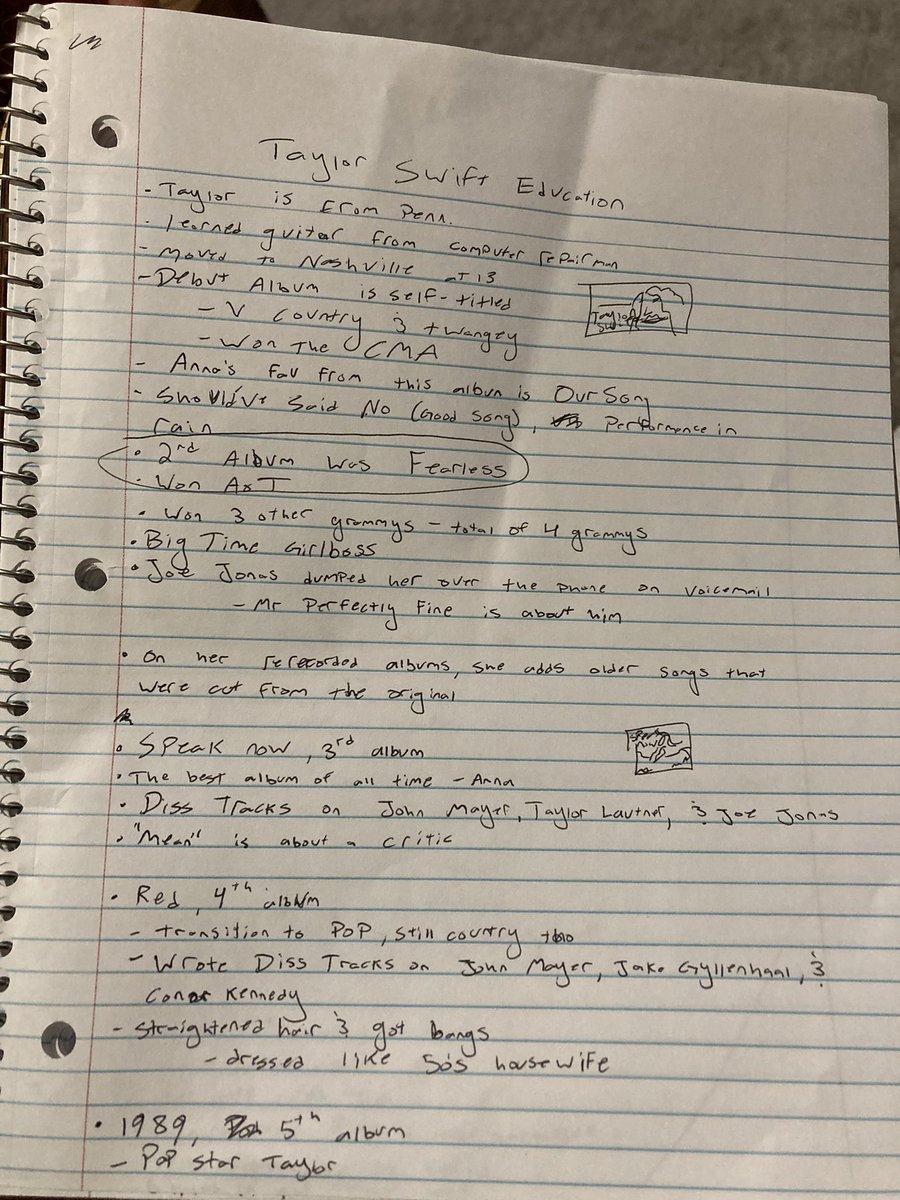 Taylor Swift Education
- Taylor is from Penn.
- learned guitar from computer repairman
- moved to Nashville at 13
- Debut Album is self-titled
- V country & twangey
- Won the CMA
- Anna's fav from this album is Our Song
- Should've Said No (Good song), Performance in
rain
Taylor
Swift
• 2nd Album was Fearless
• Won AxT
• Won 3 other grammys - total of 4 grammys
• Big Time Girlboss
• Joe Jonas dumped her over the phone on voicemail
- Mr Perfectly Fine is about him
• On her rerecorded albums, she adds older songs that
were cut from the original
• Speak now, 3rd album
Speak
now
• The best album of all time - Anna
• Diss Tracks on John Mayer, Taylor Lautner, & Joe Jonas
• "Mean" is about a critic
• Red, 4th album
- transition to Pop, still country too
- Wrote Diss Tracks on John Mayer, Jake Gyllenhaal, &
Conor Kennedy
- straightened hair & got bangs
- dressed like 50s housewife
• 1989, 5th album
- Pop star Taylor